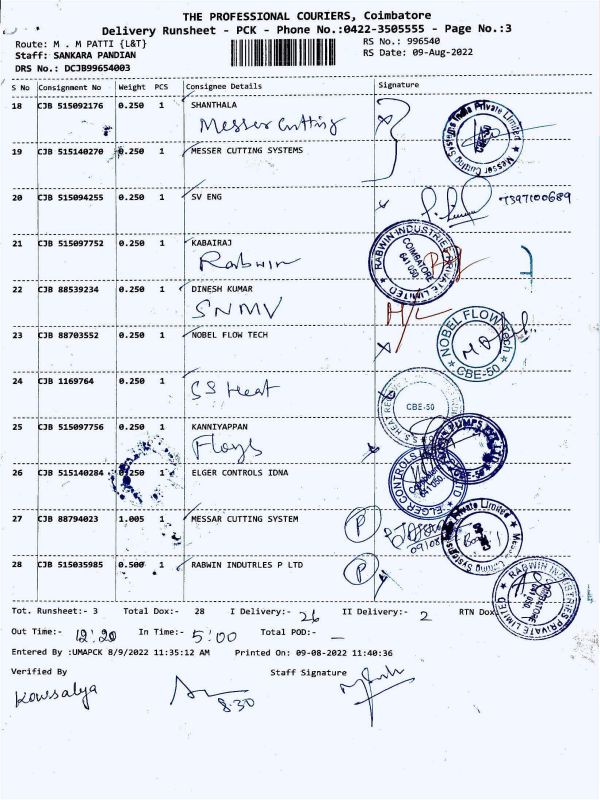 THE PROFESSIONAL COURIERS, Coimbatore
Delivery Runsheet - PCK - Phone No.:0422-3505555 - Page No.:3
Route: M . M PATTI {L&T}
RS No.: 996540
Staff: SANKARA PANDIAN
RS Date: 09-Aug-2022
DRS No.: DCJB99654003
S No Consignment No Weight PCS Consignee Details Signature
18 CJB 515092176 0.250 1 SHANTHALA
Messer Cutting
19 CJB 515140270 0.250 1 MESSER CUTTING SYSTEMS
Messer Cutting Systems India Private Limited
20 CJB 515094255 0.250 1 SV ENG
7397100689
21 CJB 515097752 0.250 1 KABAIRAJ
Rabwin
RABWIN INDUSTRIES PRIVATE LIMITED
COIMBATORE
641 050
22 CJB 88539234 0.250 1 DINESH KUMAR
SNMV
23 CJB 88703552 0.250 1 NOBEL FLOW TECH
NOBEL FLOW Tech
CBE-50
24 CJB 1169764 0.250 1
SS Heat
CBE-50
25 CJB 515097756 0.250 1 KANNIYAPPAN
PUMPS
26 CJB 515140284 0.250 1 ELGER CONTROLS IDNA
ELGER CONTROLS
641 050
27 CJB 88794023 1.005 1 MESSAR CUTTING SYSTEM
P
28 CJB 515035985 0.500 1 RABWIN INDUTRLES P LTD
P
RABWIN INDUSTRIES PRIVATE LIMITED
Tot. Runsheet:- 3 Total Dox:- 28 I Delivery:- 26 II Delivery:- 2 RTN Dox
Out Time:- 12:20 In Time:- 5:00 Total POD:- -
Entered By :UMAPCK 8/9/2022 11:35:12 AM Printed On: 09-08-2022 11:40:36
Verified By Staff Signature
Kowsalya
8.30